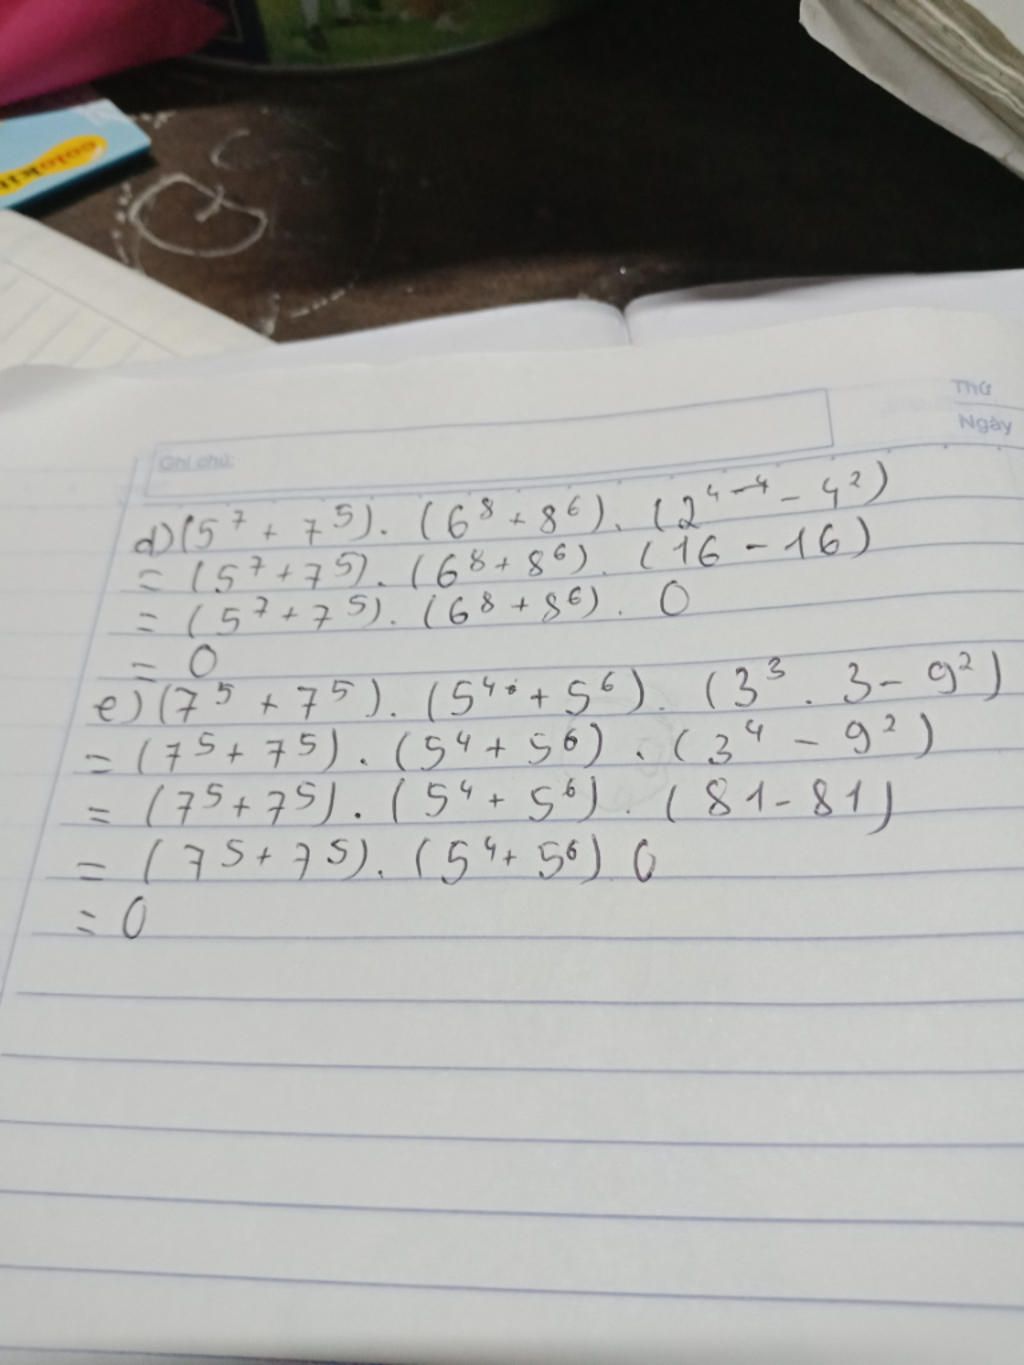 colokit
Thứ
Ngày
Ghi chú:
d) (5⁷ + 7⁵). (6⁸ + 8⁶). (2⁴⁻⁴ - 4²)
= (5⁷ + 7⁵). (6⁸ + 8⁶). (16 - 16)
= (5⁷ + 7⁵). (6⁸ + 8⁶). 0
= 0
e) (7⁵ + 7⁵). (5⁴ + 5⁶). (3³ . 3 - 9²)
= (7⁵ + 7⁵) . (5⁴ + 5⁶) . (3⁴ - 9²)
= (7⁵ + 7⁵) . (5⁴ + 5⁶) . (81 - 81)
= (7⁵ + 7⁵). (5⁴ + 5⁶) 0
= 0